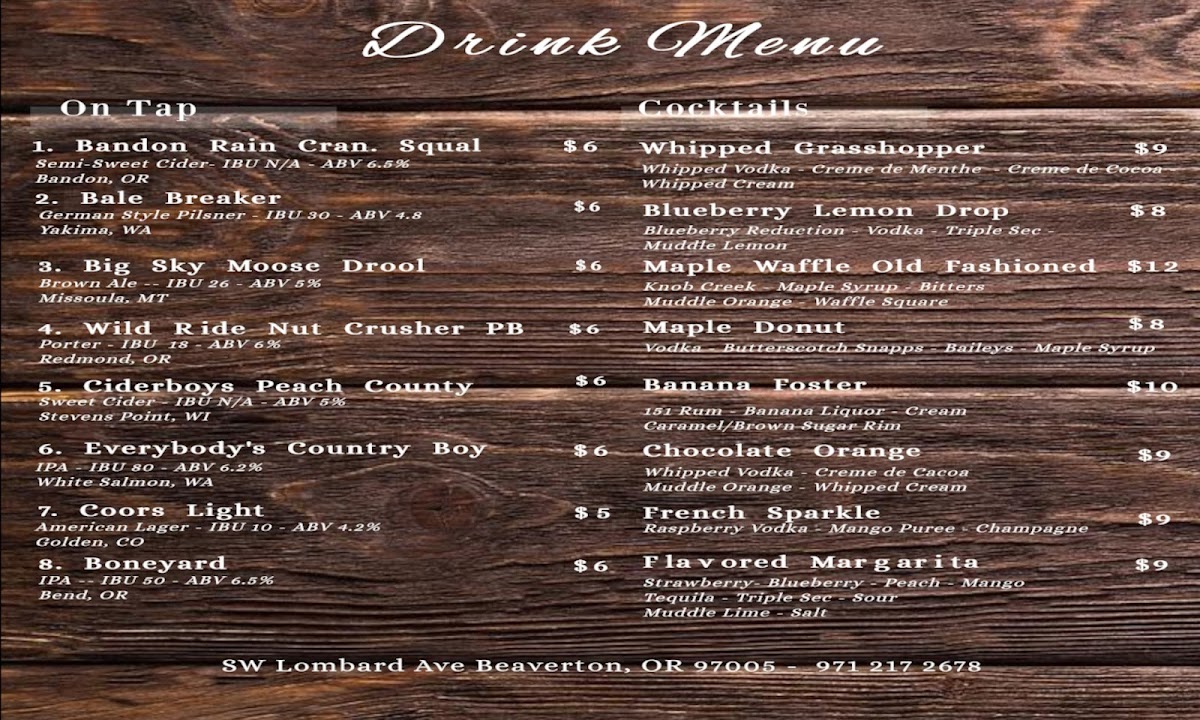 Drink Menu
On Tap
1. Bandon Rain Cran. Squal $6
Semi-Sweet Cider- IBU N/A - ABV 6.5%
Bandon, OR
2. Bale Breaker $6
German Style Pilsner - IBU 30 - ABV 4.8
Yakima, WA
3. Big Sky Moose Drool $6
Brown Ale -- IBU 26 - ABV 5%
Missoula, MT
4. Wild Ride Nut Crusher PB $6
Porter - IBU 18 - ABV 6%
Redmond, OR
5. Ciderboys Peach County $6
Sweet Cider - IBU N/A - ABV 5%
Stevens Point, WI
6. Everybody's Country Boy $6
IPA - IBU 80 - ABV 6.2%
White Salmon, WA
7. Coors Light $5
American Lager - IBU 10 - ABV 4.2%
Golden, CO
8. Boneyard $6
IPA -- IBU 50 - ABV 6.5%
Bend, OR
Cocktails
Whipped Grasshopper $9
Whipped Vodka - Creme de Menthe - Creme de Cocoa -
Whipped Cream
Blueberry Lemon Drop $8
Blueberry Reduction - Vodka - Triple Sec -
Muddle Lemon
Maple Waffle Old Fashioned $12
Knob Creek - Maple Syrup - Bitters
Muddle Orange - Waffle Square
Maple Donut $8
Vodka - Butterscotch Snapps - Baileys - Maple Syrup
Banana Foster $10
151 Rum - Banana Liquor - Cream
Caramel/Brown Sugar Rim
Chocolate Orange $9
Whipped Vodka - Creme de Cacoa
Muddle Orange - Whipped Cream
French Sparkle $9
Raspberry Vodka - Mango Puree - Champagne
Flavored Margarita $9
Strawberry- Blueberry - Peach - Mango
Tequila - Triple Sec - Sour
Muddle Lime - Salt
SW Lombard Ave Beaverton, OR 97005 - 971 217 2678